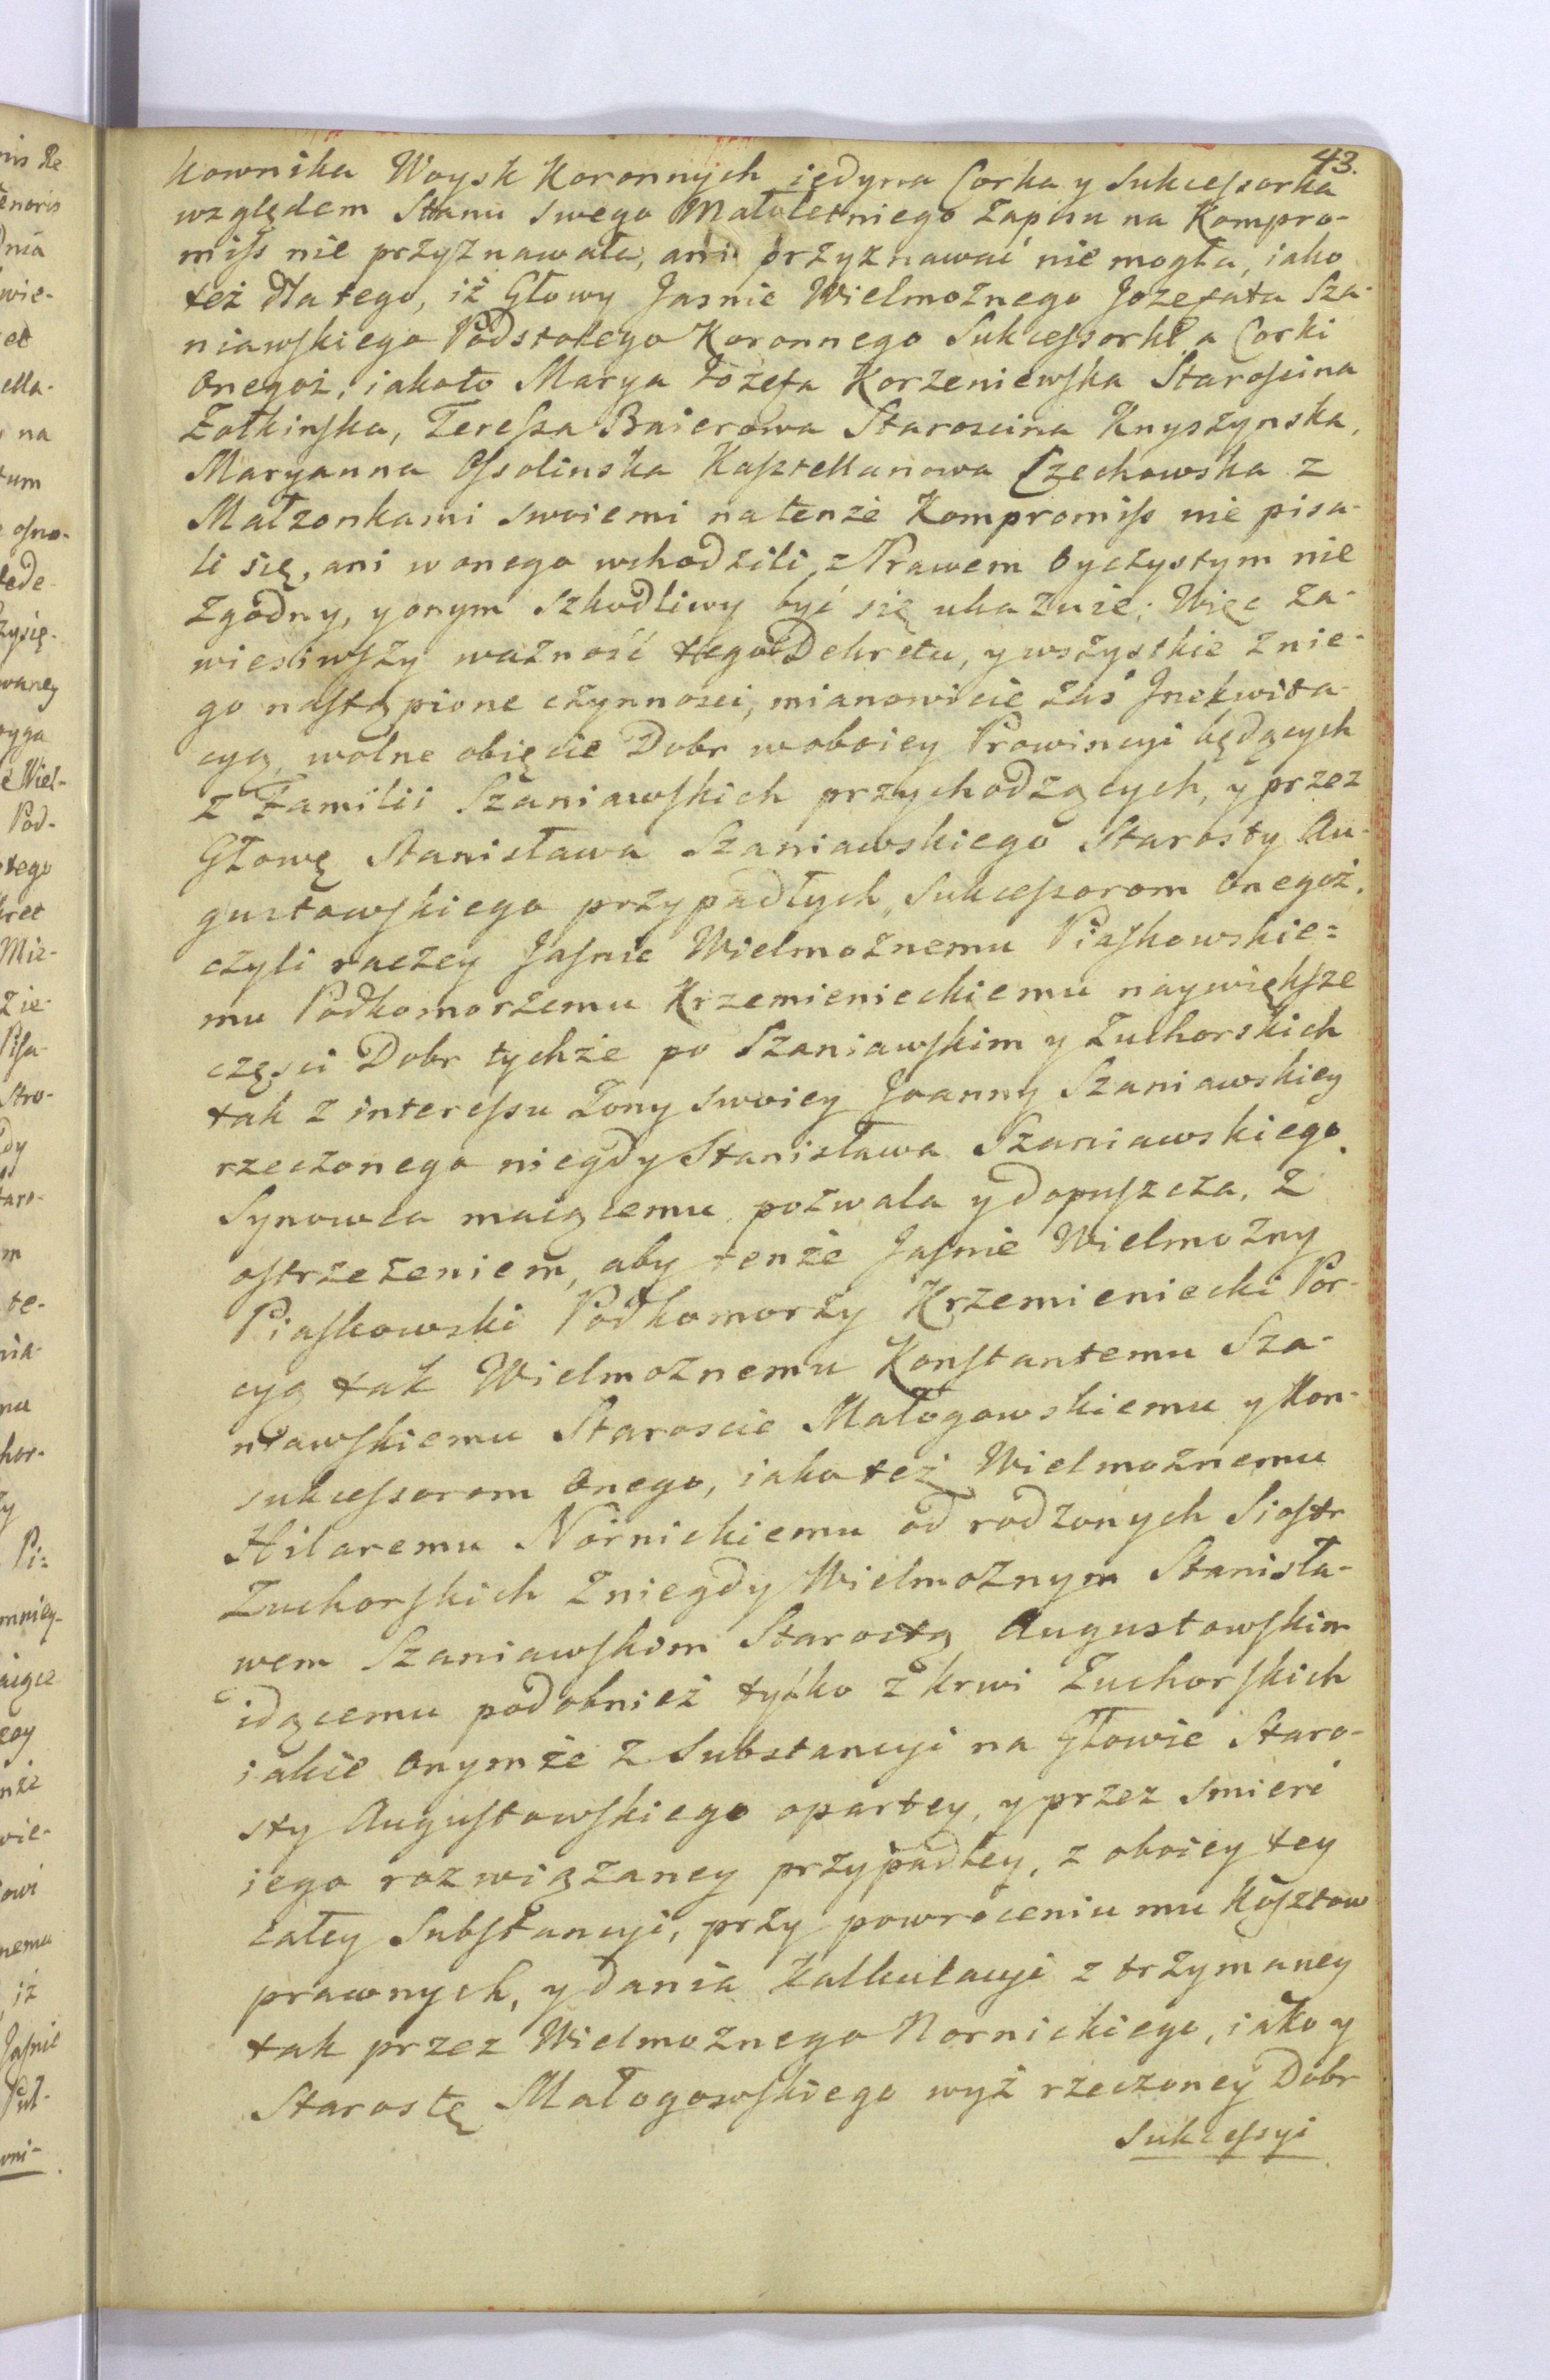 43.
kownika Woysk Koronnych iedyna Corka y Sukcessorka
względem Stanu swego Małoletniego Zapisu na Kompro-
miss nie przyznawała, ani przyznawać nie mogła, iako
też dla tego, iż Głowy Jasnie Wielmożnego Jozefata Sza-
niawskiego Podstolego Koronnego Sukcessorki a Corki
Onegoż, iakoto Marya Józefa Korzeniewska Starościna
Zołkińska, Teressa Baierowa Starościna Knyszynska,
Maryanna Ossolinska Kasztellanowa Czechowska z
Małżonkami swoiemi natenże Kompromiss nie pisa-
li się, ani w onego wchodzili, z Prawem Oyczystym nie
zgodny, y onym szkodliwy być się ukazuie; Więc za-
wiesiwszy ważność tego Dekretu, y wszystkie z nie-
go nastąpione czynności, mianowicie zaś Inekwita-
cyą, wolne obięcie Dobr w oboiey Prowincyi będących
z Familii Szaniawskich przychodzących, y przez
Głowę Stanisława Szaniawskiego Starosty Au-
gustowskiego przypadłych, Sukcessorom Onegoż,
czyli raczey Jasnie Wielmożnemu Piaskowskie=
mu Podkomorzemu Krzemienieckiemu naywiększe
części Dobr tychże po Szaniawskim y Zuchorskich
tak z interessu Żony swoiey Joanny Szaniawskiey
rzeczonego niegdy Stanisława Szaniawskiego
Synowca maiącemu pozwala y dopuszcza, z
ostrzeżeniem, aby tenże Jasnie Wielmożny
Piaskowski Podkomorzy Krzemieniecki Por-
cyą tak Wielmożnemu Konstantemu Sza-
niawskiemu Staroscie Małogowskiemu y Kon-
sukcessorom Onego, iako też Wielmożnemu
Hilaremu Nornickiemu od rodzonych Siostr
Zuchorskich z niegdy Wielmożnym Stanisła-
wem Szaniawskim Starostą Augustowskim
idącemu podobnież tylko z krwi Zuchorskich
iakie Onymże z Substancyi na Głowie Staro-
sty Augustowskiego opartey, y przez smierć
iego rozwiązaney przypadłey, z oboiey tey
całey Substancyi, przy powróceniu mu Kosztow
prawnych, y dania Kalkulacyi z trzymaney
tak przez Wielmożnego Nornickiego, iako y
Starostę Małogowskiego wyż rzeczoney Dobr
Sukcessyi